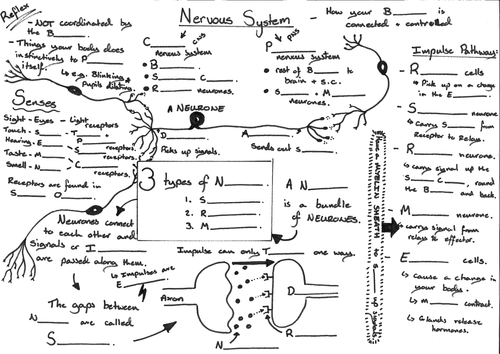 Reflex
- NOT coordinated by
the B____.
- Things your body does
instinctively to P____
itself.
↳ e.g. Blinking &
Pupils dilating.
Nervous System
C____ CNS
nervous system
• B____.
• S____ C____.
• R____ neurones.
P____ PNS
nervous system
• rest of B____ to
brain + S.C.
• S____ + M____
neurones.
- How your B____ is
connected + controlled
Impulse Pathway:
- R____ cells
* Pick up on a change
in the E____.
- S____ neurone
↳ carry S____ from
Receptor to Relays.
- R____ neurone.
↳ carry signal up the
S____ C____, round
the B____ and back.
M____ neurone.
↳ carrys signal from
relays to effector.
- E____ cells.
↳ cause a change in
your body.
↳ M____ contract.
↳ Glands release
hormones.
Senses
Sight - Eyes - Light receptors
Touch - S____ - T____ receptors
Hearing - E____ - P____ receptors.
S____ receptors.
Taste - M____
Smell - N____ - C____ receptors.
Receptors are found in
S____ O____.
A NEURONE
D____
Picks up signals.
A____
Sends out S____.
3 types of N____
1. S____
2. R____
3. M____
A N____
is a bundle
of NEURONES.
Neurones connect
to each other and
signals or I____
are passed along them.
↳ Impulses are
E____
The gaps between
N____ are called
S____
Impulse can only T____ one ways.
Axon
D____
N____
R____
Have MYELIN SHEATH to S____ up signals